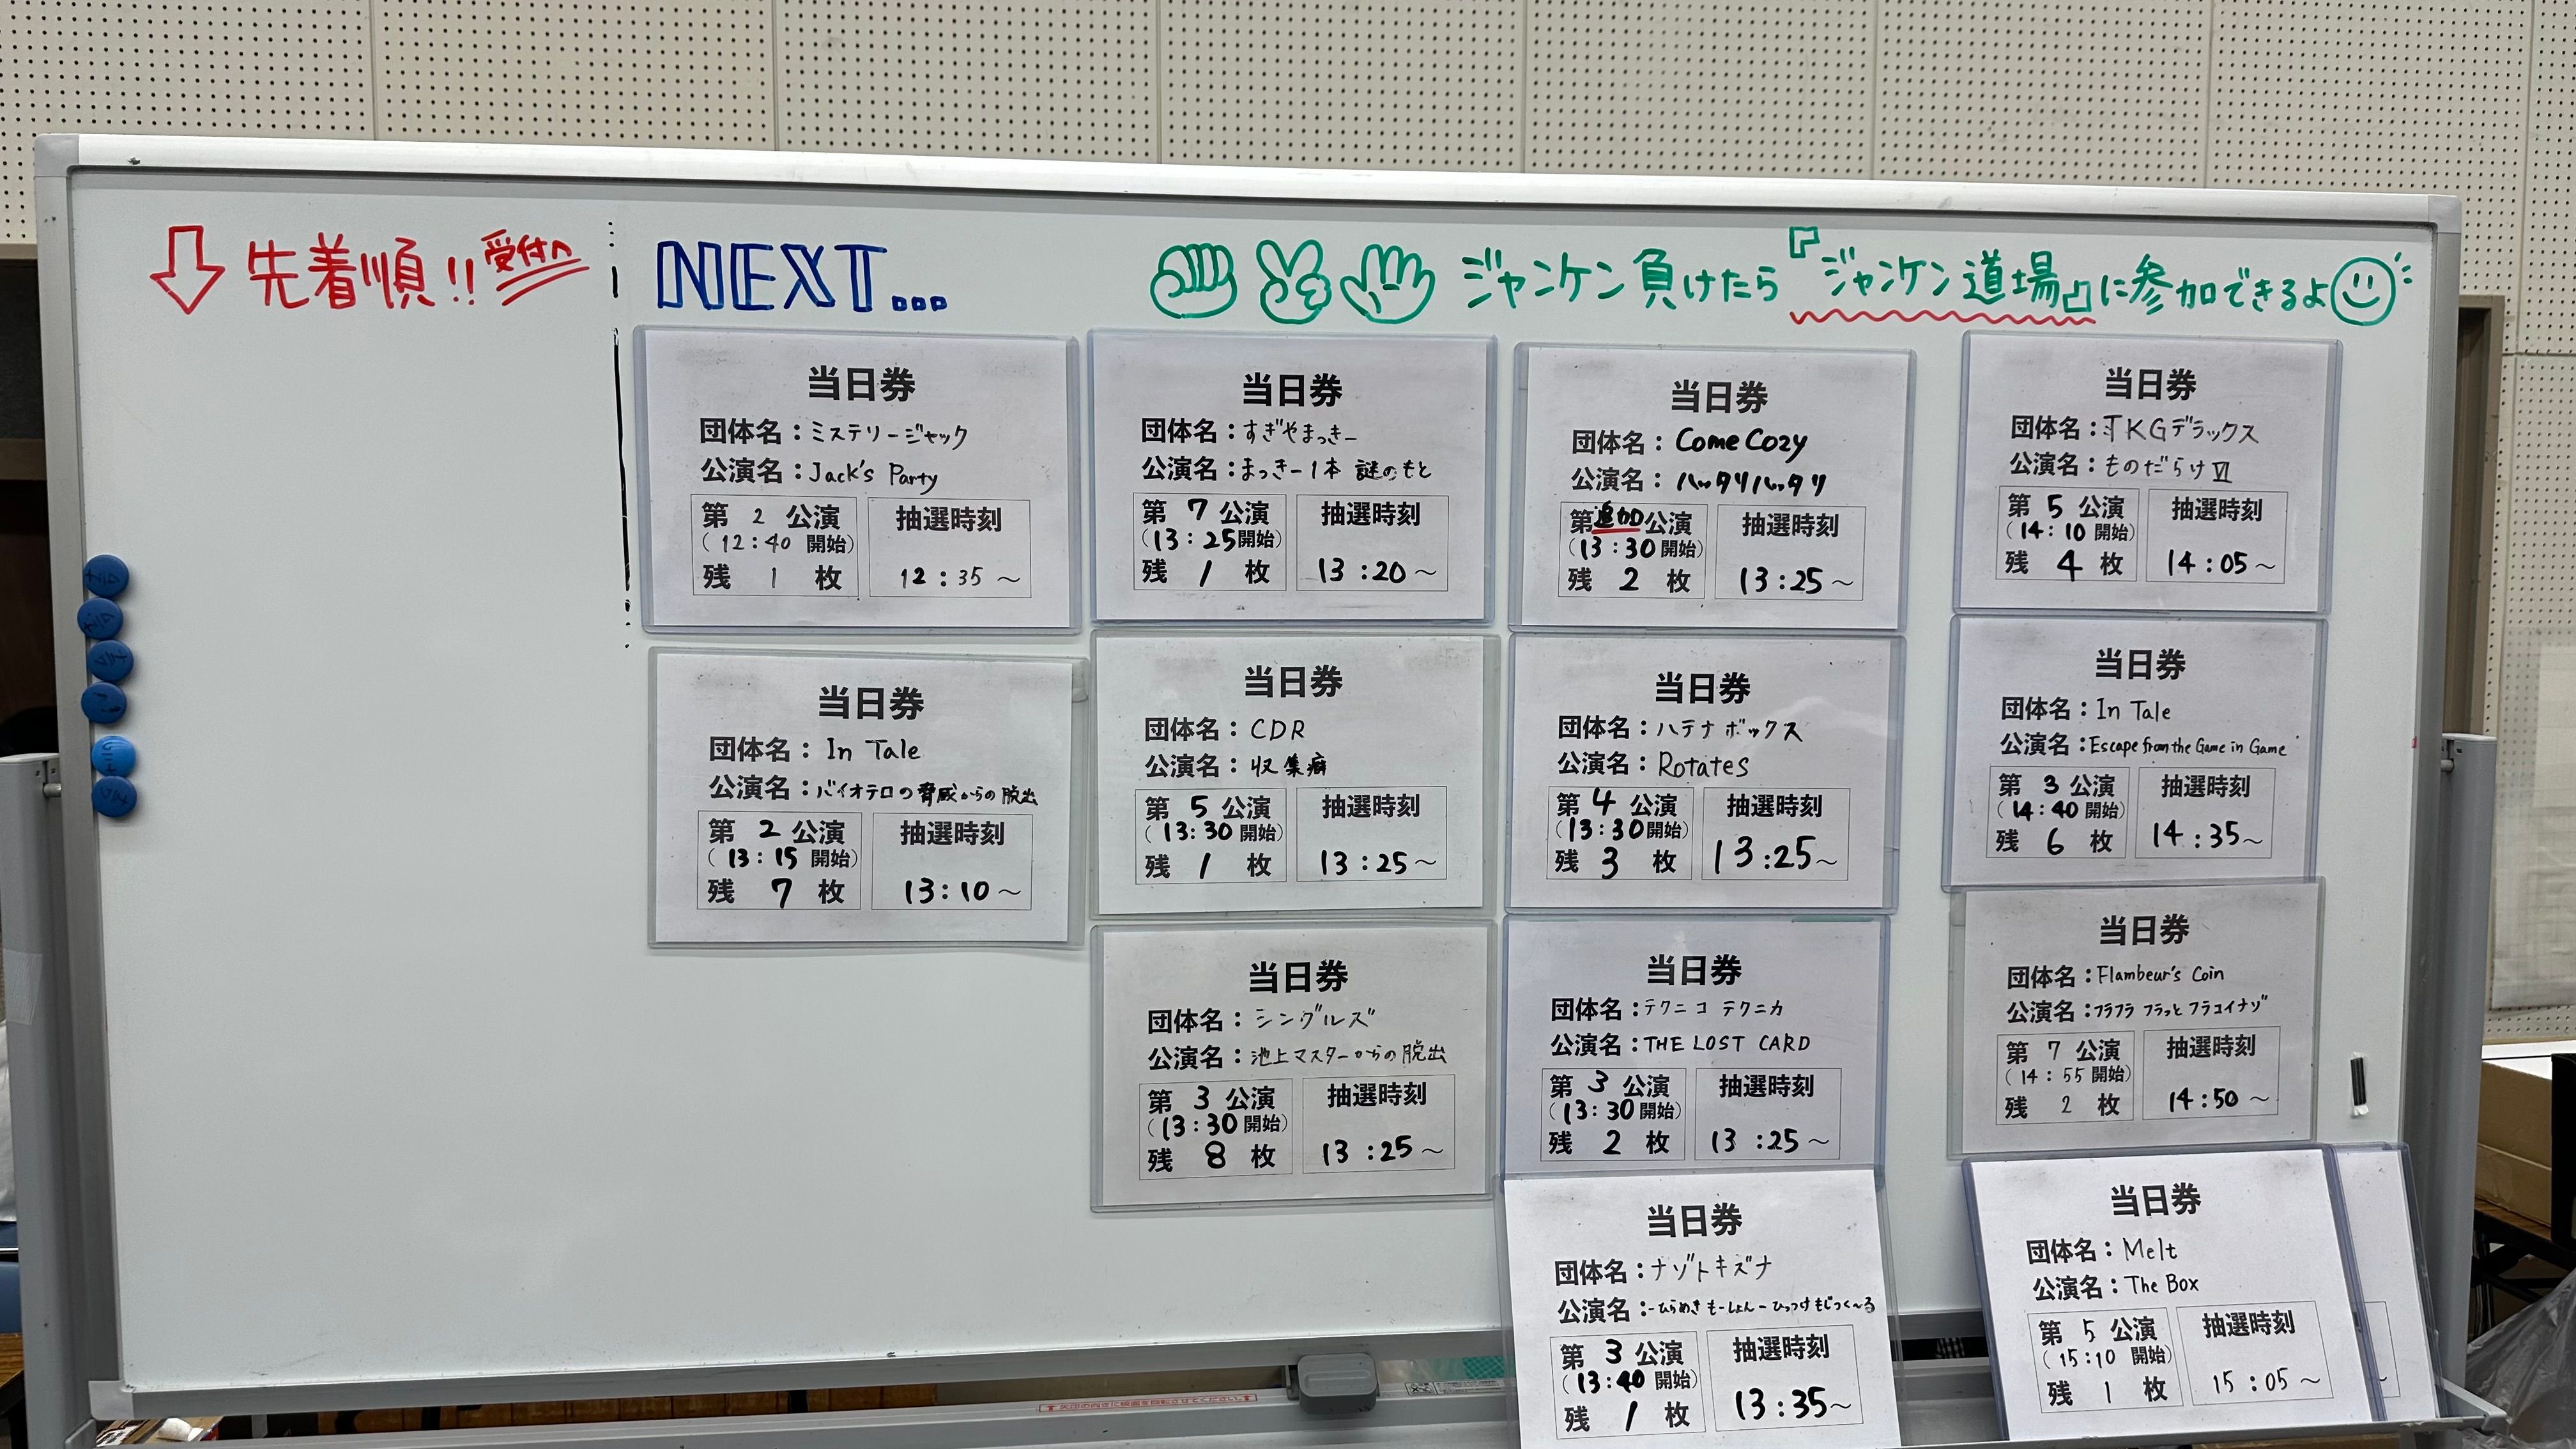 先着順!! 受付へ
NEXT...
ジャンケン負けたら『ジャンケン道場』に参加できるよ
当日券
団体名：ミステリージャック
公演名：Jack's Party
第 2 公演
(12:40 開始)
残 1 枚
抽選時刻
12:35～
当日券
団体名：In Tale
公演名：バイオテロの脅威からの脱出
第 2 公演
(13:15 開始)
残 7 枚
抽選時刻
13:10～
当日券
団体名：すぎやまっきー
公演名：まっきー1本 謎のもと
第 7 公演
(13:25開始)
残 1 枚
抽選時刻
13:20～
当日券
団体名：CDR
公演名：収集癖
第 5 公演
(13:30 開始)
残 1 枚
抽選時刻
13:25～
当日券
団体名：シングルズ
公演名：池上マスターからの脱出
第 3 公演
(13:30 開始)
残 8 枚
抽選時刻
13:25～
当日券
団体名：Come Cozy
公演名：ハッタリハッタリ
第追加公演
(13:30 開始)
残 2 枚
抽選時刻
13:25～
当日券
団体名：ハテナボックス
公演名：Rotates
第 4 公演
(13:30開始)
残 3 枚
抽選時刻
13:25～
当日券
団体名：テクニコ テクニカ
公演名：THE LOST CARD
第 3 公演
(13:30 開始)
残 2 枚
抽選時刻
13:25～
当日券
団体名：ナゾトキズナ
公演名：-ひらめきもーしょん-ひっつけもじつく～る
第 3 公演
(13:40 開始)
残 1 枚
抽選時刻
13:35～
当日券
団体名：TKGデラックス
公演名：ものだらけⅥ
第 5 公演
(14:10 開始)
残 4 枚
抽選時刻
14:05～
当日券
団体名：In Tale
公演名：Escape from the Game in Game
第 3 公演
(14:40 開始)
残 6 枚
抽選時刻
14:35～
当日券
団体名：Flambeur's Coin
公演名：フラフラ フラっと フラコイナゾ
第 7 公演
(14:55 開始)
残 2 枚
抽選時刻
14:50～
当日券
団体名：Melt
公演名：The Box
第 5 公演
(15:10 開始)
残 1 枚
抽選時刻
15:05～